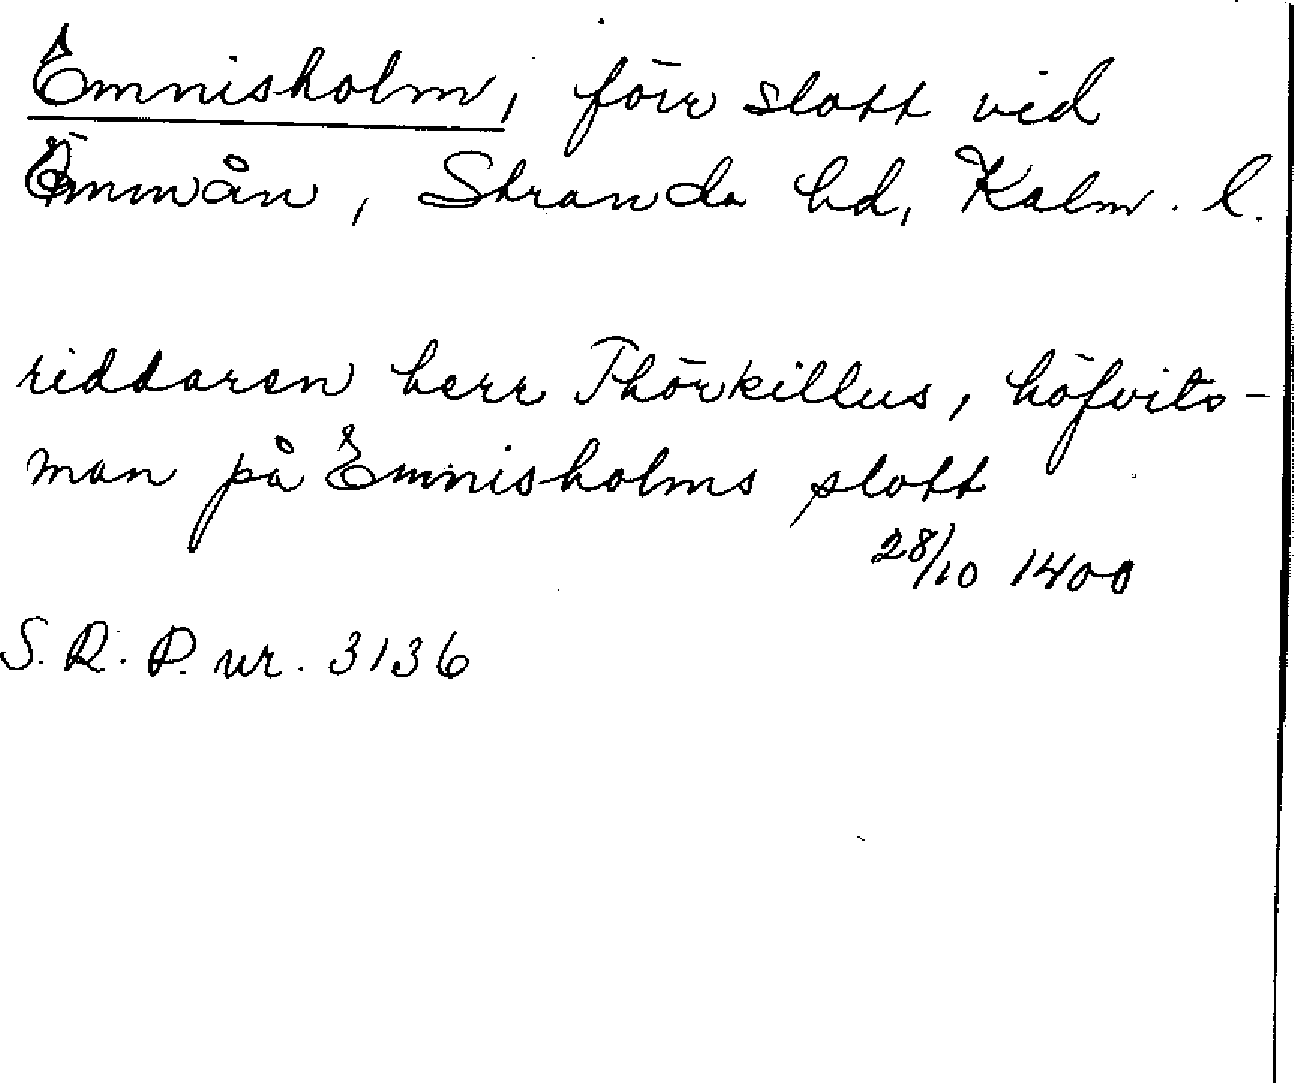 Emnisholm, förr slott vid
Emmån, Stranda hd, Kalm. l.
riddaren herr Thörkillus, höfvits-
man på Emnisholms slott
28/10 1400
S. R. P. nr. 3136